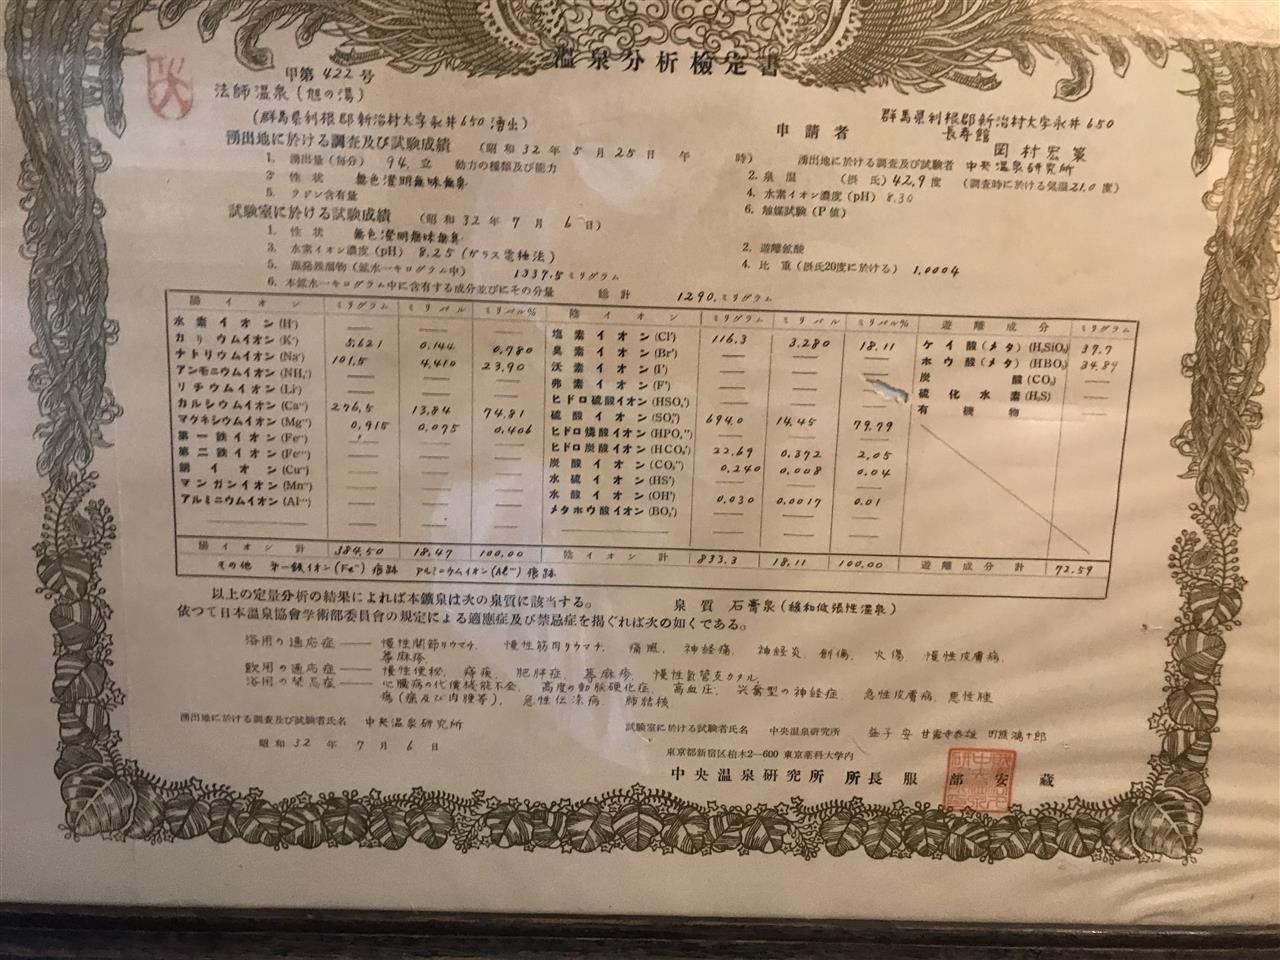 温泉分析檢定書
甲第422号
法師温泉(旭の湯)
(群馬県利根郡新治村大字永井650湧出)
申請者 群馬県利根郡新治村大字永井650
長寿館
岡村宏策
湧出地に於ける調査及び試験成績 (昭和32年5月25日 午 時) 湧出地に於ける調査及び試験者 中央温泉研究所
1. 湧出量(毎分) 94.立 動力の種類及び能力
2. 泉温 (摂氏)42.9度 (調査時に於ける気温21.0度)
3. 性状 無色澄明無味無臭
4. 水素イオン濃度(pH) 8.30
5. ラドン含有量
6. 触媒試験(P値)
試験室に於ける試験成績 (昭和32年7月6日)
1. 性状 無色澄明無味無臭
2. 遊離鉱酸
3. 水素イオン濃度(pH) 8.25(ガラス電極法)
4. 比重(摂氏20度に於ける) 1.0004
5. 蒸発残溜物(鉱水一キログラム中) 1337.5ミリグラム
6. 本鉱水一キログラム中に含有する成分並びにその分量 総計 1290.ミリグラム
陽イオン ミリグラム ミリバル ミリバル% 陰イオン ミリグラム ミリバル ミリバル% 遊離成分 ミリグラム
水素イオン(H˙) — — — 塩素イオン(Cl') 116.3 3.280 18.11 ケイ酸(メタ)(H₂SiO₃) 37.7
カリウムイオン(K˙) 5.621 0.144 0.780 臭素イオン(Br') — — — ホウ酸(メタ)(HBO₂) 34.89
ナトリウムイオン(Na˙) 101.5 4.410 23.90 沃素イオン(I') — — — 炭酸(CO₂) —
アンモニウムイオン(NH₄˙) — — — 弗素イオン(F') — — 硫化水素(H₂S) —
リチウムイオン(Li˙) — — — ヒドロ硫酸イオン(HSO₄') — — — 有機物 —
カルシウムイオン(Ca˙˙) 276.5 13.84 74.81 硫酸イオン(SO₄'') 694.0 14.45 79.79
マグネシウムイオン(Mg˙˙) 0.915 0.075 0.406 ヒドロ燐酸イオン(HPO₄'') — — —
第一鉄イオン(Fe˙˙) — — ヒドロ炭酸イオン(HCO₃') 22.69 0.372 2.05
第二鉄イオン(Fe˙˙˙) — — — 炭酸イオン(CO₃'') 0.240 0.008 0.04
銅イオン(Cu˙˙) — — — 水硫イオン(HS') — — —
マンガンイオン(Mn˙˙) — — — 水酸イオン(OH') 0.030 0.0017 0.01
アルミニウムイオン(Al˙˙˙) — — — メタホウ酸イオン(BO₂') — — —
陽イオン計 384.50 18.47 100.00 陰イオン計 833.3 18.11 100.00 遊離成分計 72.59
その他 第一鉄イオン(Fe˙˙)痕跡 アルミニウムイオン(Al˙˙˙)痕跡
以上の定量分析の結果によれば本鑛泉は次の泉質に該当する。 泉質 石膏泉(緩和低張性温泉)
依つて日本温泉協會学術部委員會の規定による適應症及び禁忌症を掲ぐれば次の如くである。
浴用の適応症—— 慢性関節リウマチ、慢性筋肉リウマチ、痛風、神経痛、神経炎、創傷、火傷、慢性皮膚病、
蕁麻疹、
飲用の適応症—— 慢性便秘、痔疾、肥胖症、蕁麻疹、慢性気管支カタル、
浴用の禁忌症—— 心臓病の代償機能不全、高度の動脈硬化症、高血圧、興奮型の神経症、急性皮膚病、悪性腫
瘍(癌及び肉腫等)、急性伝染病、肺結核
湧出地に於ける調査及び試験者氏名 中央温泉研究所
試験室に於ける試験者氏名 中央温泉研究所 益子安 甘露寺泰雄
昭和32年7月6日
東京都新宿区柏木2—600 東京薬科大学内
中央温泉研究所 所長 服部安蔵